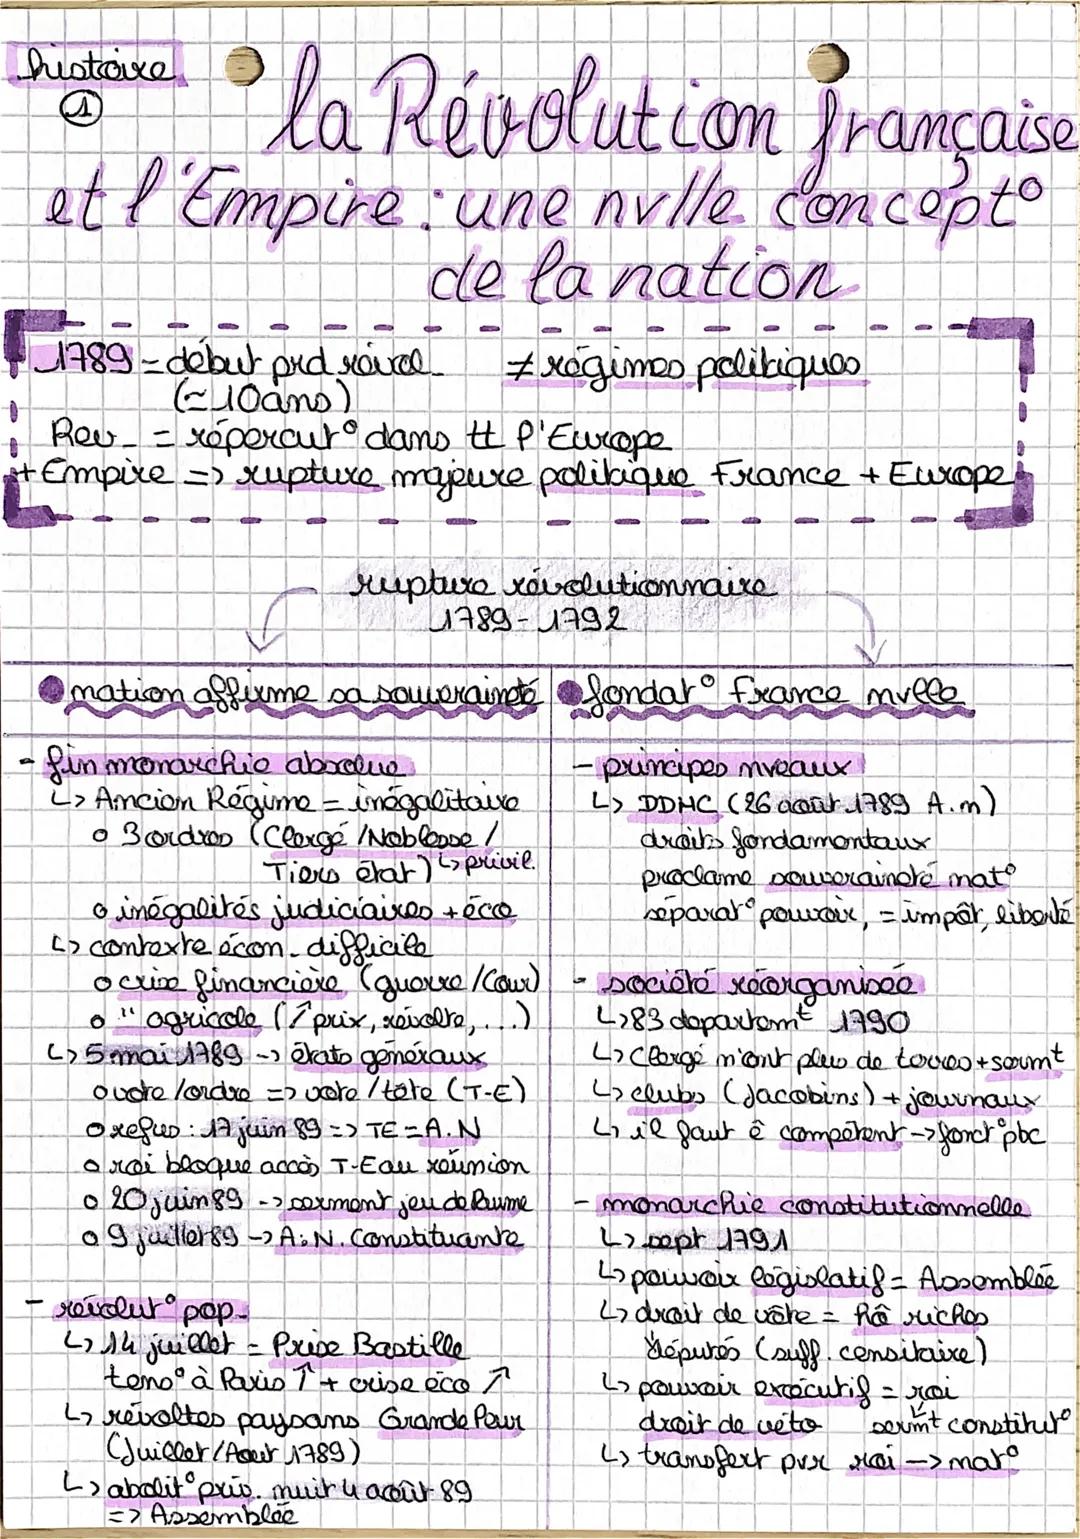 histoire
①
la Révolution française
et l'Empire : une nvlle concept°
de la nation
1789 = début prd révol. ≠ régimes politiques
(≃ 10 ans)
Rev_ = répercut° dans tt l'Europe
+ Empire => rupture majeure politique France + Europe
rupture révolutionnaire
1789 - 1792
nation affirme sa souveraineté
- fin monarchie absolue
↳ Ancien Régime = inégalitaire
o 3 ordres (Clergé / Noblesse /
Tiers état) ↳ privil.
o inégalités judiciaires + éco
↳ contexte écon. difficile
o crise financière (guerre / Cour)
o " agricole (↗ prix, révolte, ...)
↳ 5 mai 1789 -> états généraux
o votre / ordre => vote / tête (T-E)
o refus : 17 juin 89 => TE = A.N
o roi bloque accès T-E au réunion
o 20 juin 89 -> serment jeu de Paume
o 9 juillet 89 -> A.N. Constituante
- révolut° pop.
↳ 14 juillet = Prise Bastille
tens° à Paris ↑ + crise éco ↗
↳ révoltes paysans Grande Peur
(Juillet / Aout 1789)
↳ abolit° priv. nuit 4 août 89
=> Assemblée
fondat° France nvlle
- principes nveaux
↳ DDHC (26 août 1789 A.n)
droits fondamentaux
proclame souveraineté nat°
séparat° pouvoir, = impôt, liberté
- société réorganisée
↳ 83 departemt 1790
↳ Clergé n'ont plus de terres + sermt
↳ clubs (Jacobins) + journaux
↳ il faut ê compétent -> fonct° pbc
- monarchie constitutionnelle
↳ sept 1791
↳ pouvoir législatif = Assemblée
↳ droit de vôte = hô riches
députés (suff. censitaire)
↳ pouvoir exécutif = roi
droit de véto sermt constitut°
↳ transfert pvr roi -> nat°